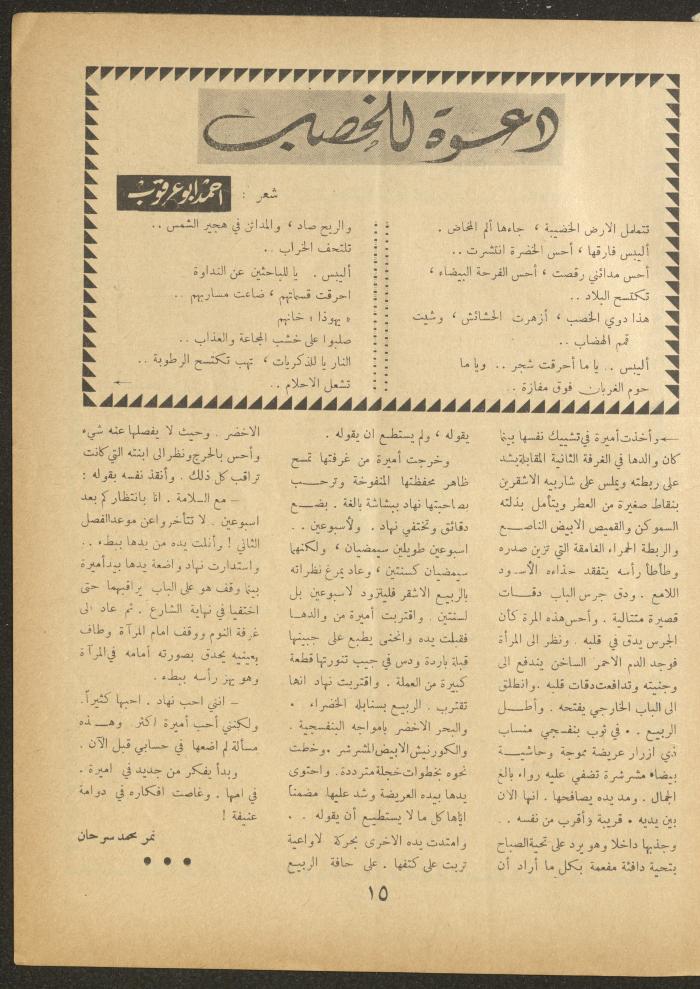 دعوة للخصب
شعر : احمد ابو عرقوب
تتململ الارض الخضيبة ، جاءها ألم المخاض .
أليس فارقها ، أحس الخضرة انتشرت ..
أحس مدائني رقصت ، أحس الفرحة البيضاء ،
تكتسح البلاد ..
هذا دوي الخصب ، أزهرت الحشائش ، وشيت
قمم الهضاب ..
أليس .. يا ما أحرقت شجر .. ويا ما
حوم الغربان فوق مفازة ..
والريح صاد ، والمدائن في هجير الشمس ..
تلتحف الخراب ..
أليس . يا للباحثين عن النداوة
احرقت قسماتهم ، ضاعت مساربهم ..
ه يهوذا ؛ خانهم
صلبوا على خشب المجاعة والعذاب ..
النار يا للذكريات ، تهب تكتسح الرطوبة ..
تشعل الاحلام ..
وأخذت أميرة في تشبيك نفسها بينما
كان والدها في الغرفة الثانية المقابلة يشد
على ربطته ويملس على شاربيه الاشقرين
بنقاط صغيرة من العطر ويتأمل بذلته
السموكن والقميص الابيض الناصع
والربطة الحمراء الغامقة التي تزين صدره
وطأطأ رأسه يتفقد حذاءه الأسود
اللامع . ودق جرس الباب دقات
قصيرة متتالية . وأحس هذه المرة كأن
الجرس يدق في قلبه . ونظر الى المرأة
فوجد الدم الاحمر الساخن يندفع الى
وجنيته وتدافعت دقات قلبه . وانطلق
الى الباب الخارجي يفتحه . وأطل
الربيع . . في ثوب بنفسجي منساب
ذي ازرار عريضة مموجة وحاشية
بيضاء مشرشرة تضفي عليه رواء بالغ
الجمال . ومد يده يصافحها . انها الان
بين يديه . قريبة وأقرب من نفسه . .
وجذبها داخلا وهو يرد على تحية الصباح
بتحية دافئة مفعمة بكل ما أراد أن
يقوله ، ولم يستطع ان يقوله .
وخرجت أميرة من غرفتها تمسح
ظاهر محفظتها المنفوخة وترحب
بصاحبتها نهاد ببشاشة بالغة . بضع
دقائق وتختفي نهاد . ولأسبوعين . .
اسبوعين طويلين سيمضيان ، ولكنهما
سيمضيان كسنتين ، وعاد يمرغ نظراته
بالربيع الاشقر فليتزود لاسبوعين بل
لسنتين . واقتربت أميرة من والدها
فقبلت يده وانحنى يطبع على جبينها
قبلة باردة ودس في جيب تنورتها قطعة
كبيرة من العملة . واقتربت نهاد انها
تقترب . الربيع بسنابله الخضراء .
والبحر الاخضر بامواجه البنفسجية .
والكورنيش الابيض المشرشر . وخطت
نحوه بخطوات خجلة مترددة . واحتوى
يدها بيده العريضة وشد عليها مضمناً
اياها كل ما لا يستطيع أن يقوله . .
وامتدت يده الاخرى بحركة لاواعية
تربت على كتفها . على حافة الربيع
الاخضر . وحيث لا يفصلها عنه شيء
وأحس بالحرج ونظر الى ابنته التي كانت
تراقب كل ذلك . وأنقذ نفسه بقوله :
— مع السلامة . انا بانتظاركم بعد
اسبوعين . لا تتأخروا عن موعد الفصل
الثاني ! وأنلت يده من يدها ببطء . .
واستدارت نهاد واضعة يدها بيد أميرة
بينما وقف هو على الباب يراقبهما حتى
اختفيا في نهاية الشارع . ثم عاد الى
غرفة النوم ووقف امام المرآة وطاف
بعينيه يحدق بصورته أمامه في المرآة
وهو يهز رأسه ببطء .
— انني احب نهاد . احبها كثيراً .
ولكنني أحب أميرة اكثر وهذه
مسألة لم اضعها في حسابي قبل الآن .
وبدأ يفكر من جديد في اميرة .
في امها . وغاصت افكاره في دوامة
عنيفة !
نمر محمد سرحان
١٥